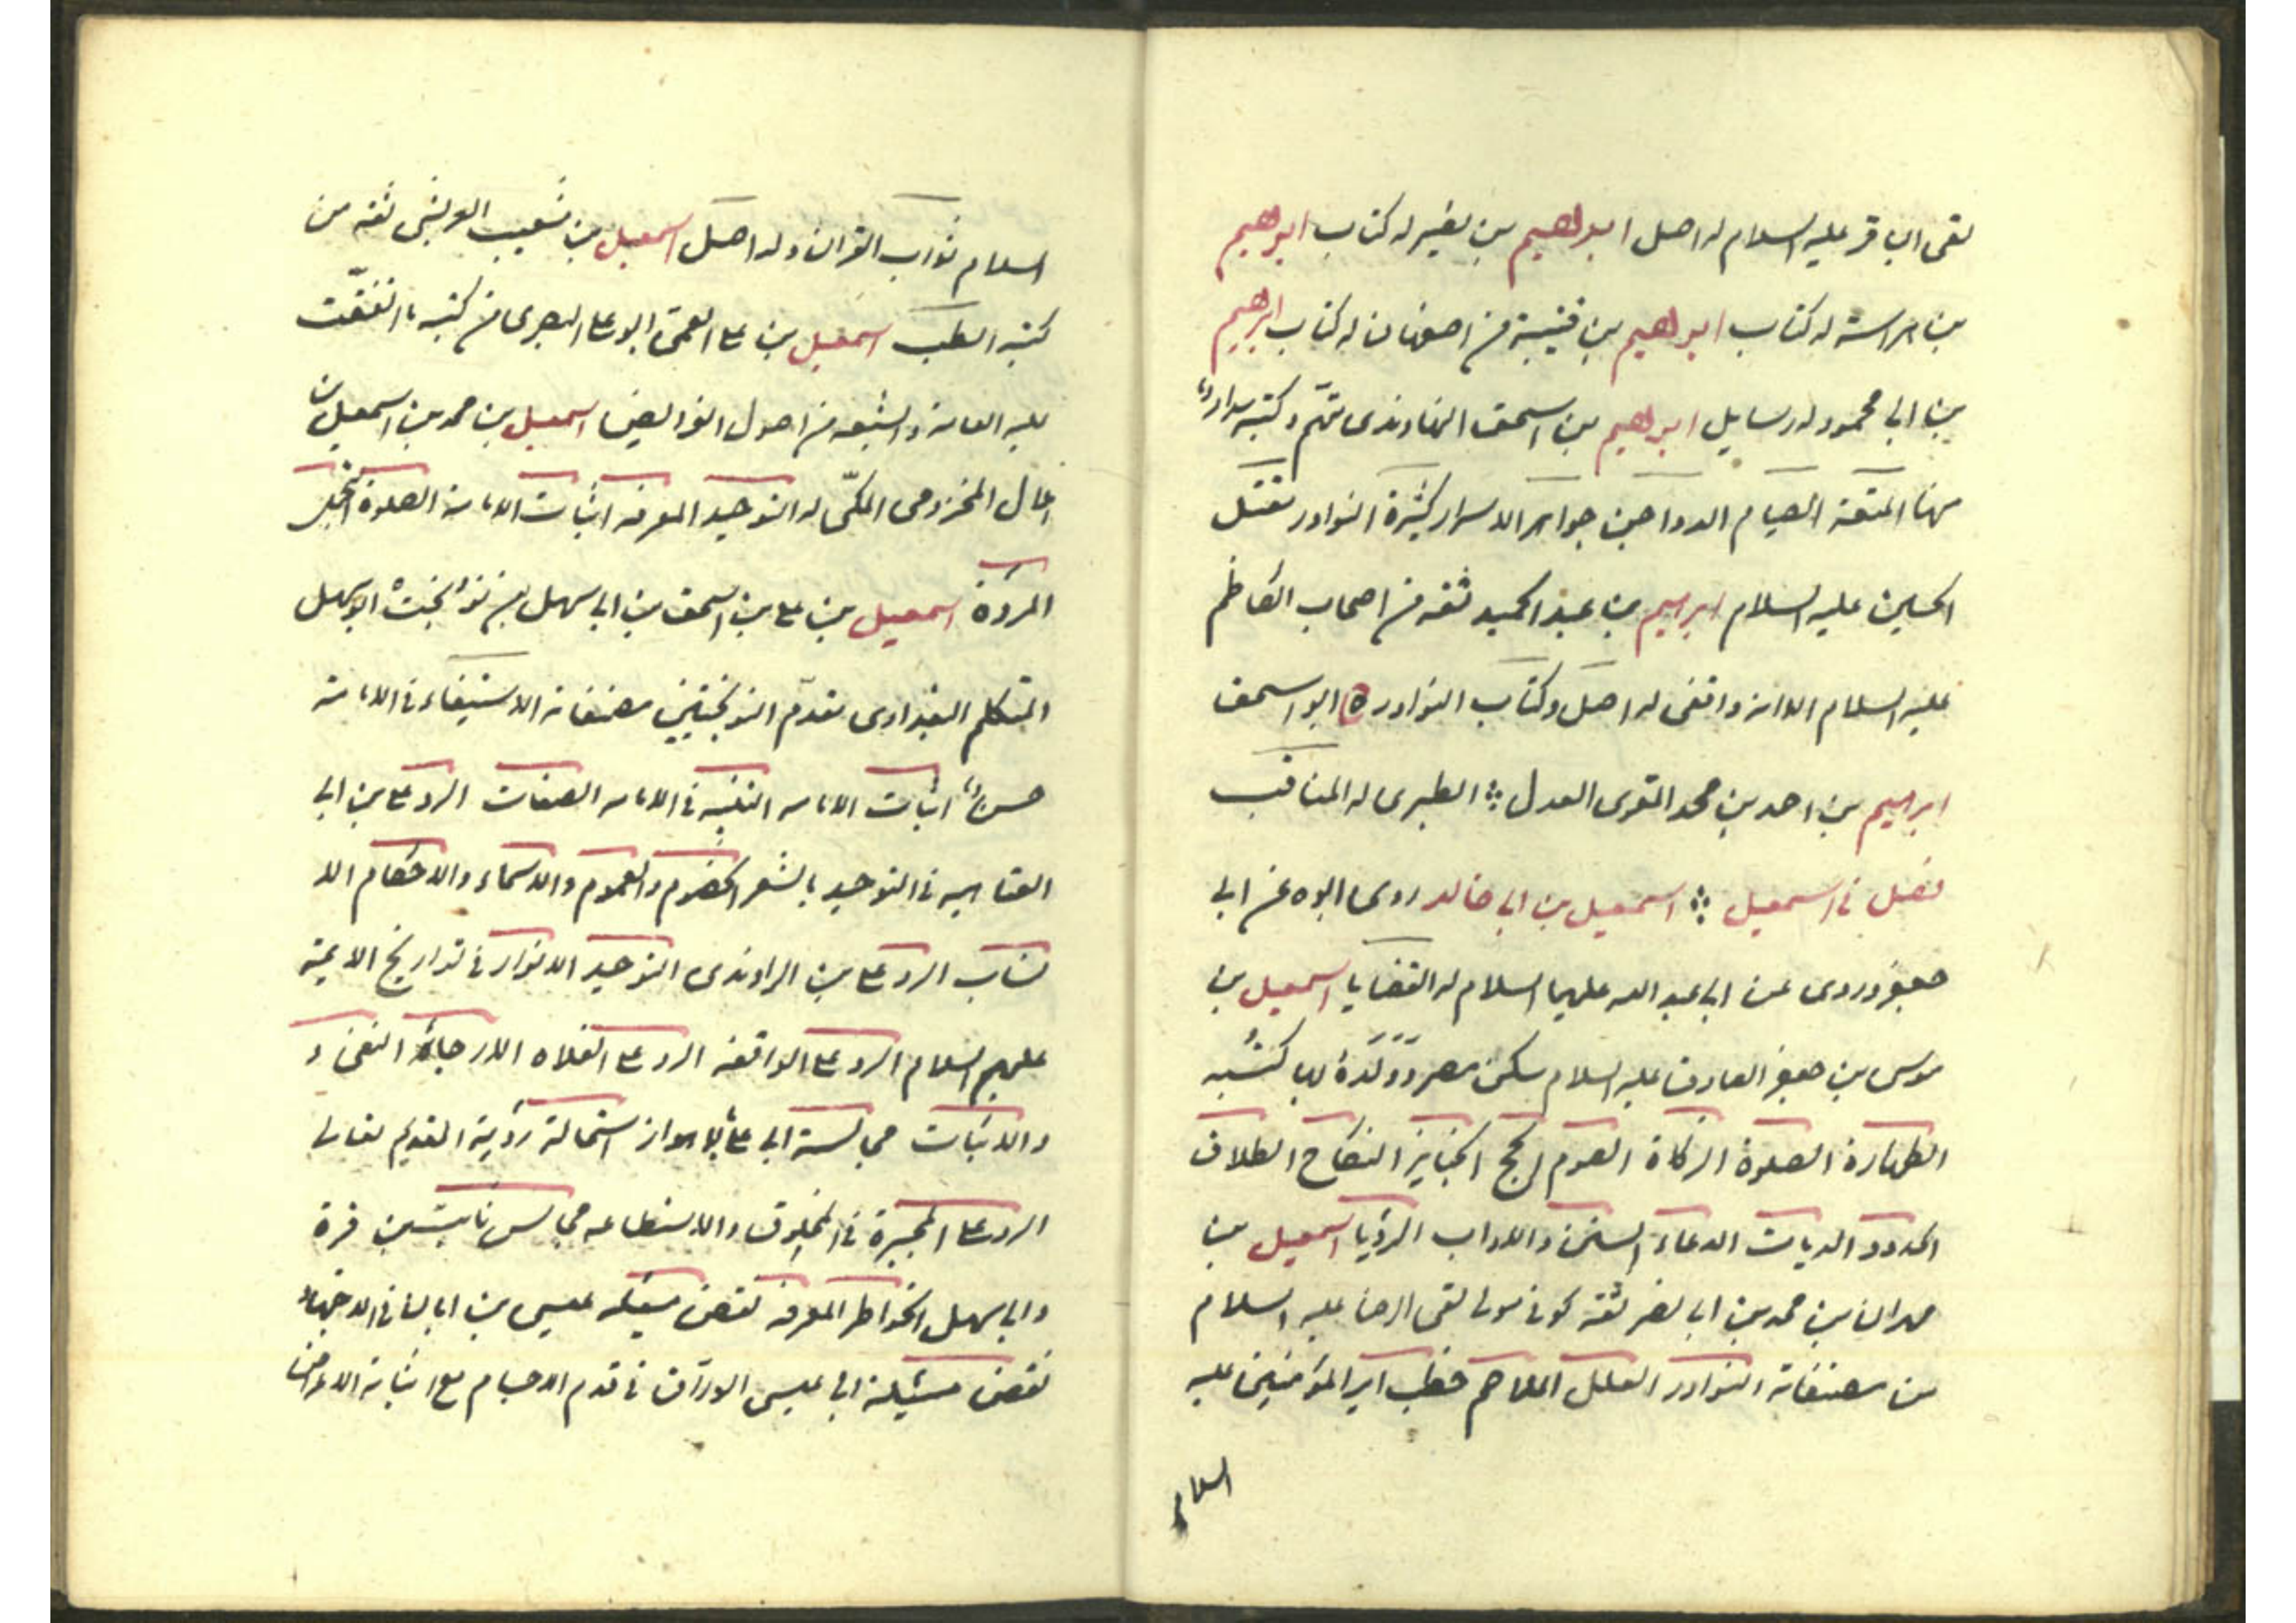 لقى الباقر عليه السلام له اصل ابراهيم بن نصير له كتاب ابراهيم
بن هراسة له كتاب ابراهيم بن قتيبة من اصفهان له كتاب ابراهيم
بن ابي محمود له رسايل ابراهيم بن اسحق النهاوندى متهم وكتبه سداد
منها المتعة الصيام الدواجن جواهر الاسرار كبيرة النوادر مقتل
الحسين عليه السلام ابراهيم بن عبد الحميد ثقه من اصحاب الكاظم
عليه السلام الا انه واقفى له اصل وكتاب النوادر ابو اسحق
ابراهيم بن احمد بن محمد المقرى العدل الطبرى له المناقب
فصل في اسمعيل اسمعيل بن ابي خالد روى ابوه عن ابي
جعفر وروى عن ابي عبد الله عليهما السلام له القضايا اسمعيل بن
موسى بن جعفر الصادق عليه السلام سكن مصر وولده بها كتبه
الطهارة الصلوة الزكاة الصوم الحج الجنايز النكاح الطلاق
الحدود الديات الدعاء السنن والاداب الرؤيا اسمعيل بن
مهران بن محمد بن ابي نصر ثقة كوفى مولى لقى الرضا عليه السلام
من مصنفاته النوادر العلل الملاحم خطب امير المؤمنين عليه
السلام
السلام ثواب القران وله اصل اسمعيل بن شعيب العريشى ثقه من
كتبه الطب اسمعيل بن على العمى ابو على البصرى من كتبه ما اتفقت
عليه العامة والشيعة من اصول الفرايض اسمعيل بن محمد بن اسمعيل بن
هلال المخزومى المكّى له التوحيد المعرفه اثبات الامامة الصلوة التجمل
المروة اسمعيل بن على بن اسحق بن ابي سهل بن نوبخت ابو سهل
المتكلم البغدادى مقدّم النوبختيين مصنفاته الاستيفاء في الامامة
حسن اثبات الامامه التنبيه في الامامه الصفات الرد على بن ابي
العتاهيه في التوحيد بالشعر الخصوم والعموم والاسماء والاحكام الا
نساب الرد على بن الراوندى التوحيد الانوار في تواريخ الايمة
عليهم السلام الرد على الواقفه الرد على الغلاه الارجاء النفى و
والاثبات مجالسة ابي على بالاهواز استحالة رؤية القديم تعالى
الرد على المجبرة في المخلوق والاستطاعه مجالس ثابت بن قرة
وابي سهل الخواطر المعرفه نقض مسئله عيسى بن ابان في الاجتهاد
نقض مسئلة ابي عيسى الورّاق في قدم الاجسام مع اثباته الاعراض